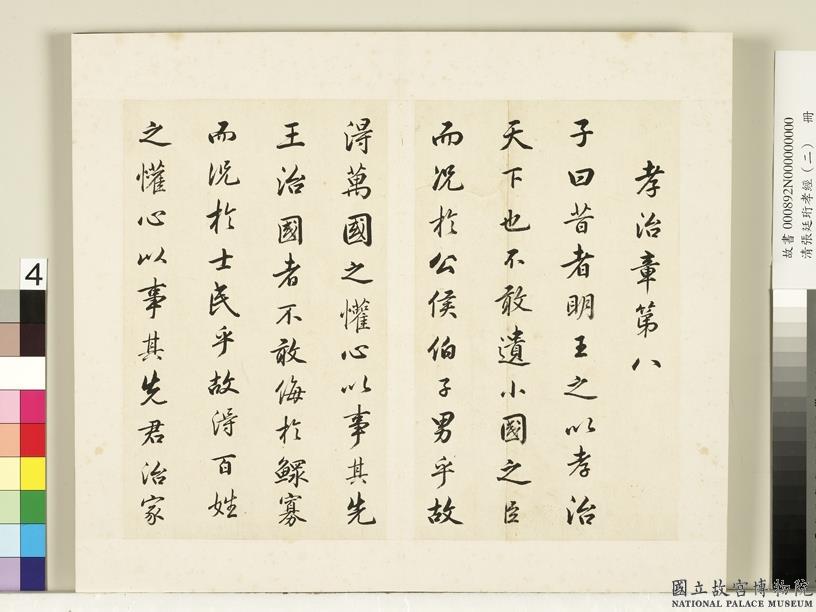 孝治章第八
子曰昔者明王之以孝治
天下也不敢遺小國之臣
而況於公侯伯子男乎故
得萬國之懽心以事其先
王治國者不敢侮於鰥寡
而況於士民乎故得百姓
之懽心以事其先君治家
故書000892N000000000
清張廷珩孝經(二) 冊
4
國立故宮博物院
NATIONAL PALACE MUSEUM